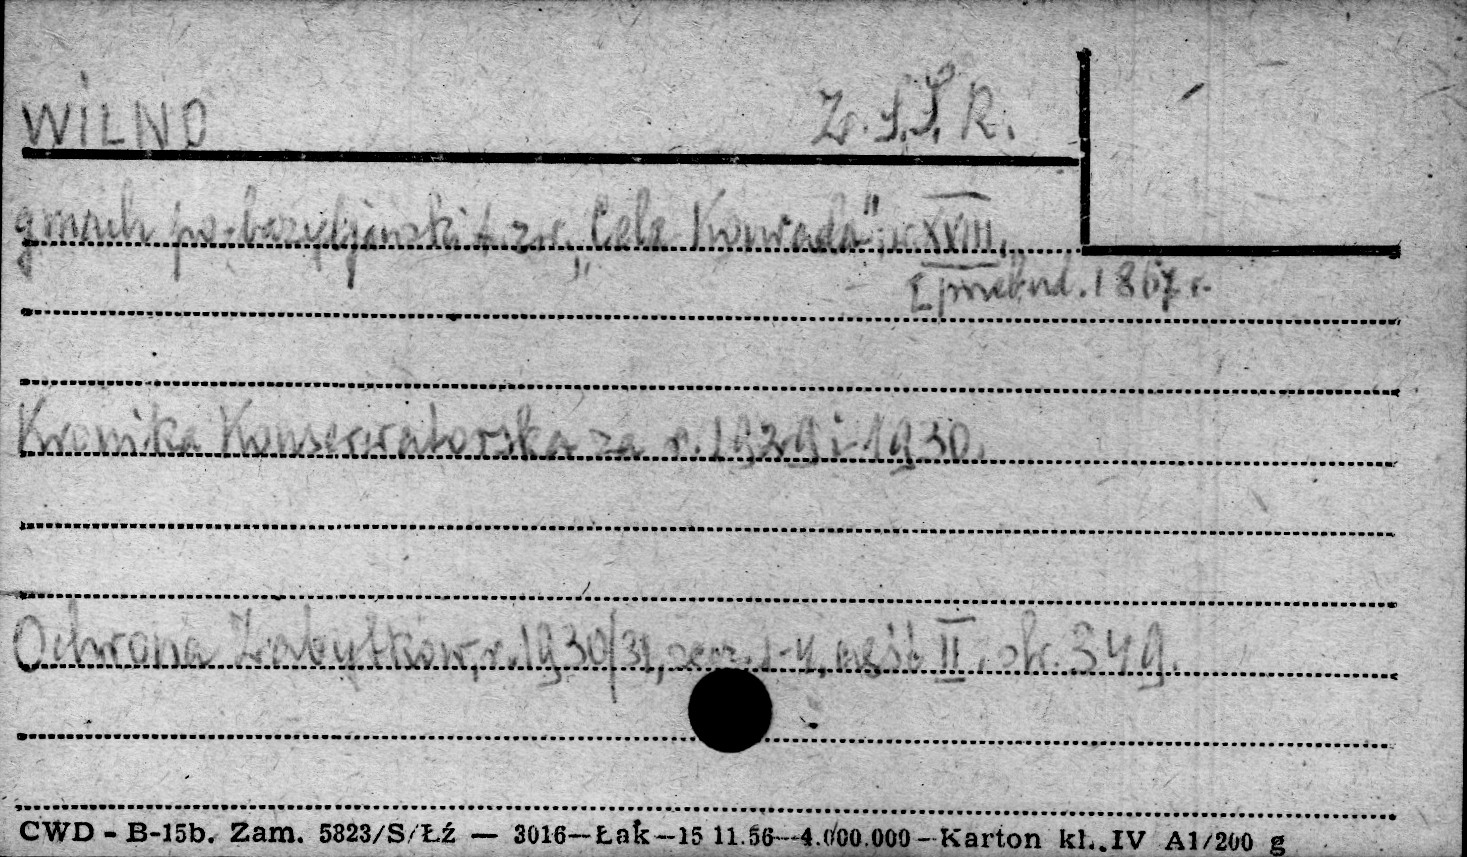 WILNO Z.S.S.R.
gmach po-bazyljański t. zw. „Cela Konrada" w XVIII.
przebud. 1867 r.
Kronika Konserwatorska za r. 1929 i 1930.
Ochrona Zabytków, r. 1930/31, zesz. 1-4, część II. str. 349.
CWD - B-15b. Zam. 5823/S/Łź — 3016—Łak—15 11.56—4.000.000—Karton kl. IV A1/200 g